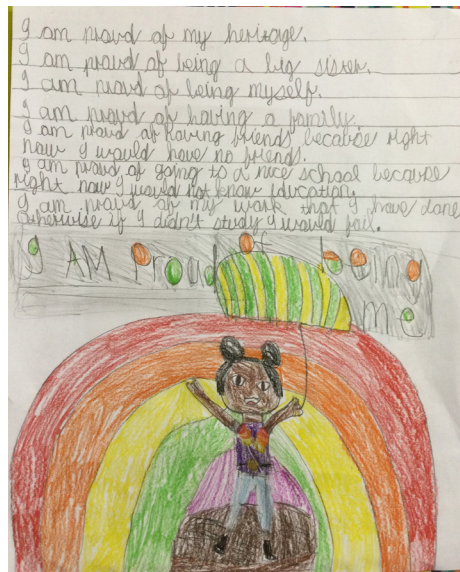 I am proud of my heritage.
I am proud of being a big sister.
I am proud of being myself.
I am proud of having a family.
I am proud of having friends because right
now I would have no friends.
I am proud of going to a nice school because
right now I would not know education.
I am proud of my work that I have done
otherwise if I didn't study I would fail.
I AM Proud of being
me